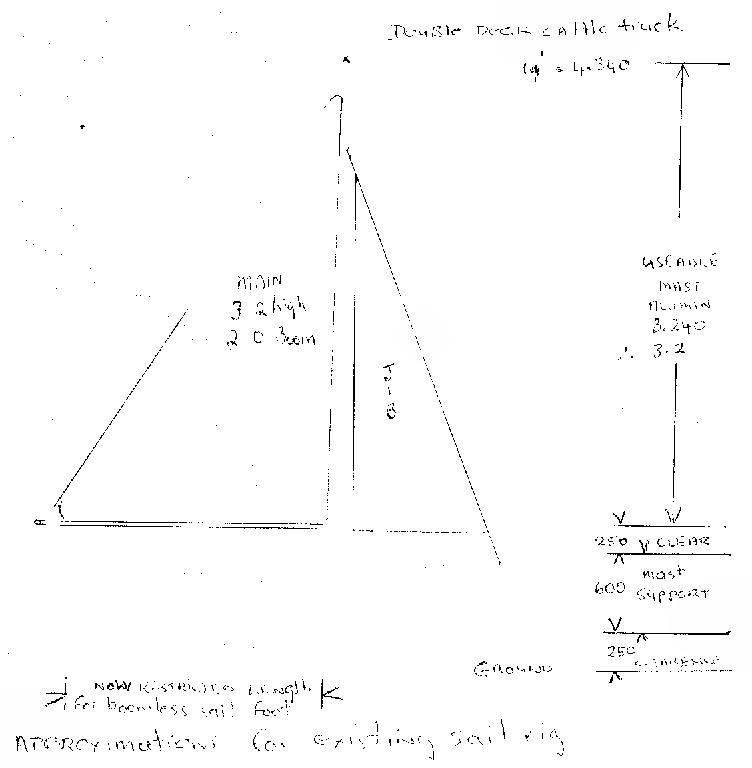 DOUBLE DECK CATTLE truck
14' = 4.340
USEABLE
MAST
ALUMIN
3.240
∴ 3.2
MAIN
3 2 high
2 0 Boom
JIB
250 CLEAR
600 mast
SUPPORT
250
GROUND
NOW LENGTH
for boomless sail foot
APPROXimations for existing sail rig